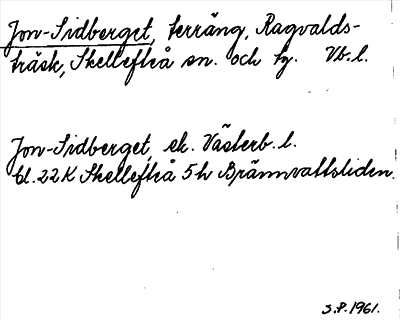 Jon-Sidberget, terräng, Ragvalds-
träsk, Skellefteå sn. och tg. Vb.l.
Jon-Sidberget, ek. Västerb.l.
bl. 22K Skellefteå 5h Brännvattsliden.
S.P. 1961.